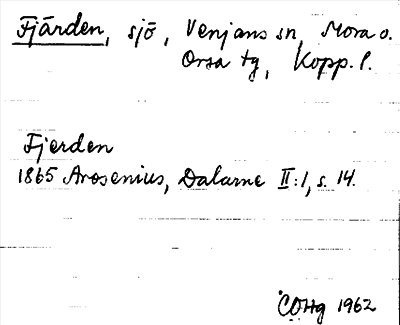 Fjärden, sjö, Venjans sn, Mora o.
Orsa tg, Kopp. l.
Fjerden
1865 Arosenius, Dalarne II:1, s. 14.
COHg 1962